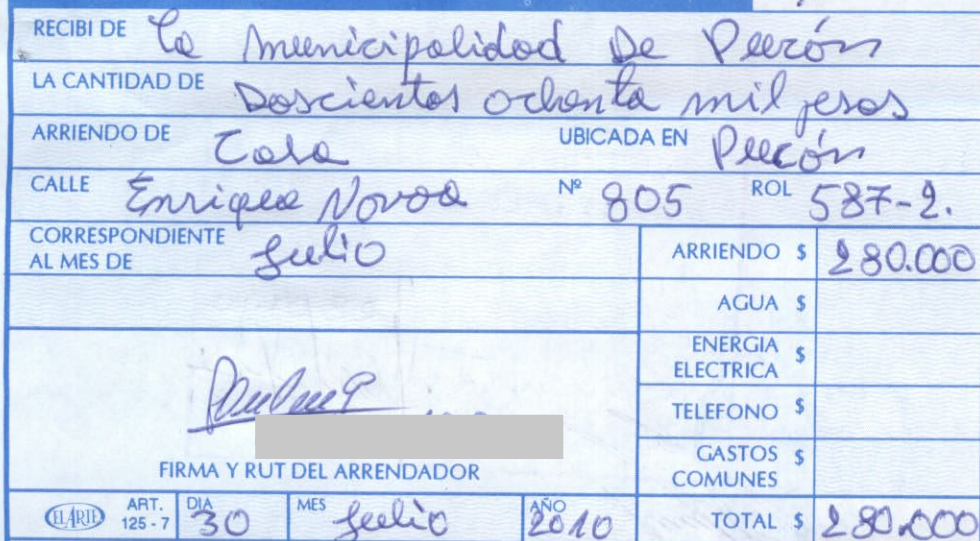 RECIBI DE La Municipalidad De Pucón
LA CANTIDAD DE Doscientos ochenta mil pesos
ARRIENDO DE Casa UBICADA EN Pucón
CALLE Enrique Novoa Nº 805 ROL 587-2.
CORRESPONDIENTE AL MES DE Julio
ARRIENDO $ 280.000
AGUA $
ENERGIA ELECTRICA $
TELEFONO $
GASTOS COMUNES $
FIRMA Y RUT DEL ARRENDADOR
EL ARTE ART. 125-7 DIA 30 MES Julio AÑO 2010 TOTAL $ 280.000